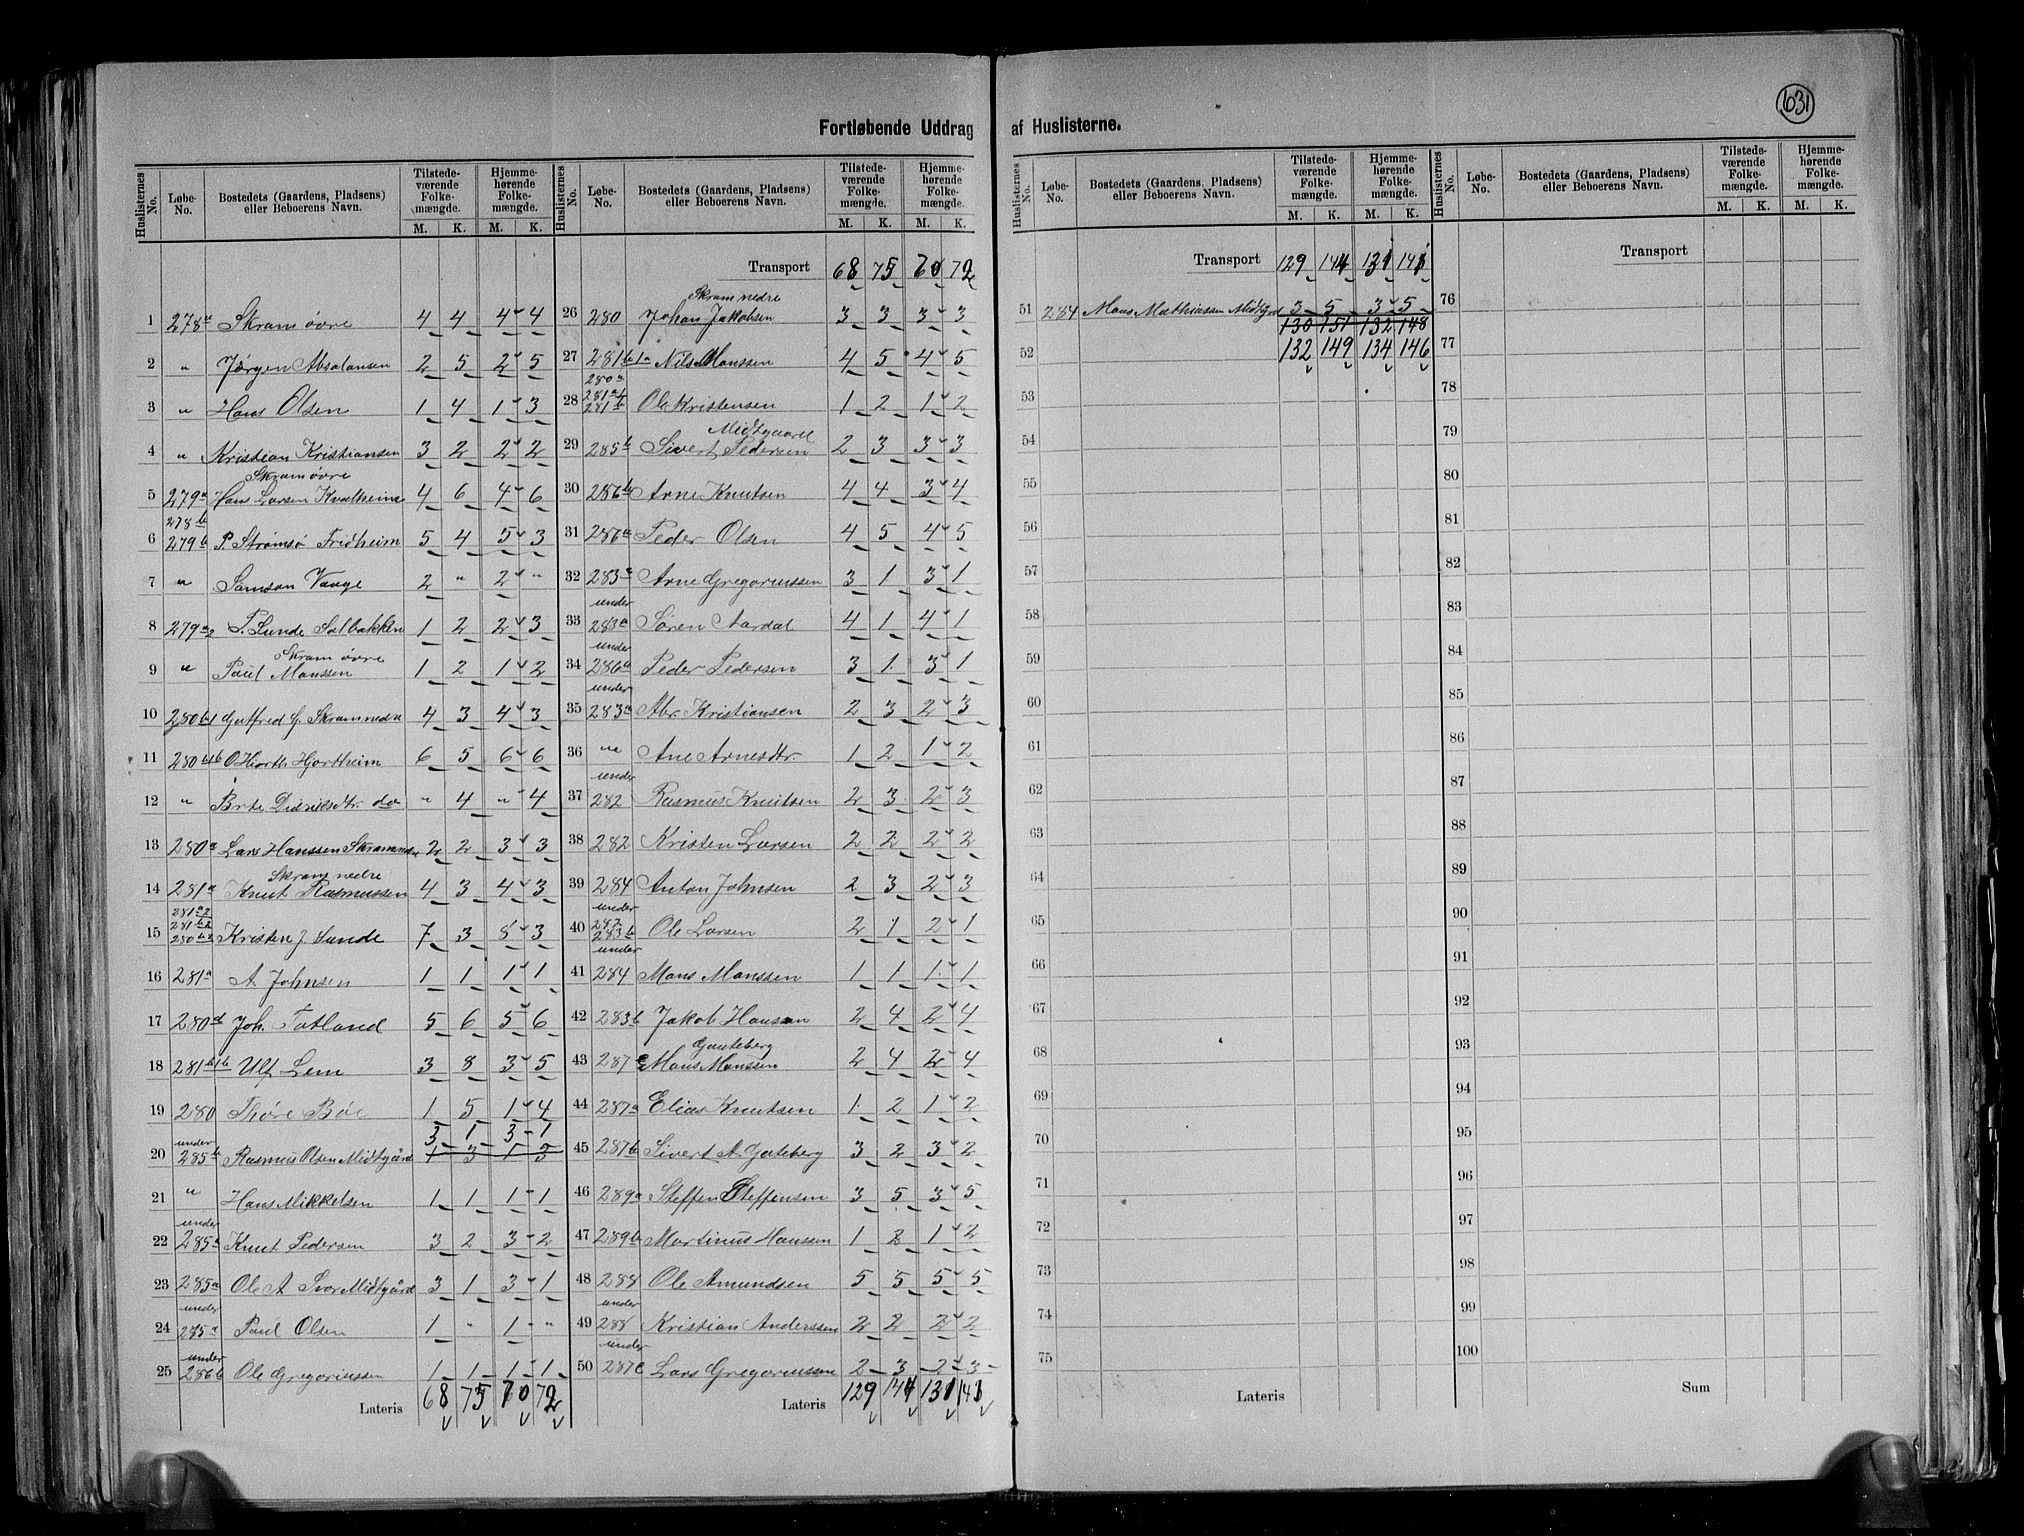 631
Fortløbende Uddrag af Huslisterne.
Huslisternes No. | Løbe-No. | Bostedets (Gaardens, Pladsens) eller Beboerens Navn. | Tilstede-værende Folke-mængde. M. K. | Hjemme-hørende Folke-mængde. M. K.
1 278a Skram øvre 4 4 4 4
2 " Jørgen Absalonsen 2 5 2 5
3 " Hans Olsen 1 4 1 3
4 " Kristian Kristiansen 3 2 2 2
Skram øvre
5 279a Hans Larsen Kvalheim 4 6 4 6
278b
6 279b P. Strømsø Fridheim 5 4 5 3
7 " Samson Vaage 2 " 2 "
8 279a2 P. Lunde Solbakken 1 2 2 3
Skram øvre
9 " Paul Monssen 1 2 1 2
10 280b1 Gutfred G. Skramnedre 4 3 4 3
11 280b1b O Hjorth Hjortheim 6 5 6 6
12 " Brte Didriksdtr do " 4 " 4
13 280a Lars Hanssen Skramned 2 2 3 3
Skram nedre
14 281a Knut Rasmussen 4 3 4 3
281a2
281b2
15 280b2 Kristen J. Lunde 7 3 5 3
16 281a A Johnsen 1 1 1 1
17 280d Joh. Totland 5 6 5 6
18 281b1b Ulf Lem 3 8 3 5
19 280 Thore Bøe 1 5 1 4
under 3 1 3 1
20 285b Rasmus Olsen Midtgård 1 3 1 3
21 " Hans Mikkelsen 1 1 1 1
under
22 285a Knut Pedersen 3 2 3 2
23 285a Ole A Ivor Midtgård 3 1 3 1
under
24 285a Paul Olsen 1 " 1 "
under
25 286b Ole Gregoriussen 1 1 1 1
Lateris 68 75 70 72
Huslisternes No. | Løbe-No. | Bostedets (Gaardens, Pladsens) eller Beboerens Navn. | Tilstede-værende Folke-mængde. M. K. | Hjemme-hørende Folke-mængde. M. K.
Transport 68 75 70 72
Skram nedre
26 280 Johan Jakobsen 3 3 3 3
27 281b1a Nils Monssen 4 5 4 5
280a
281a1
28 281b Ole Kristensen 1 2 1 2
Midtgaard
29 285b Sivert Pedersen 2 3 3 3
30 286b Arne Knutsen 4 4 3 4
31 286a Peder Olsen 4 5 4 5
32 283a Arne Gregoriussen 3 1 3 1
under
33 283a Søren Aardal 4 1 4 1
under
34 286a Peder Pedersen 3 1 3 1
under
35 283a Abr. Kristiansen 2 3 2 3
36 " Ane Arnesdtr. 1 2 1 2
under
37 282 Rasmus Knutsen 2 3 2 3
38 282 Kristen Larsen 2 2 2 2
39 284 Anton Johnsen 2 3 2 3
under
282
40 283b Ole Larsen 2 1 2 1
under
41 284 Mons Monssen 1 1 1 1
42 283b Jakob Hanssen 2 4 2 4
Gauteberg
43 287c Mons Monssen 2 4 2 4
44 287a Elias Knutsen 1 2 1 2
45 287b Sivert A Gauteberg 3 2 3 2
46 289a Steffen Steffensen 3 5 3 5
47 289b Martinus Hanssen 1 2 1 2
48 288 Ole Amundsen 5 5 5 5
under
49 288 Kristian Anderssen 2 2 2 2
under
50 287c Lars Gregoriussen 2 3 2 3
Lateris 129 144 131 141
Huslisternes No. | Løbe-No. | Bostedets (Gaardens, Pladsens) eller Beboerens Navn. | Tilstede-værende Folke-mængde. M. K. | Hjemme-hørende Folke-mængde. M. K.
Transport 129 144 131 141
51 284 Mons Mathiassen Midtgrd 3 5 3 5
130 151 132 148
52 132 149 134 146
53
54
55
56
57
58
59
60
61
62
63
64
65
66
67
68
69
70
71
72
73
74
75
Lateris
Huslisternes No. | Løbe-No. | Bostedets (Gaardens, Pladsens) eller Beboerens Navn. | Tilstede-værende Folke-mængde. M. K. | Hjemme-hørende Folke-mængde. M. K.
Transport
76
77
78
79
80
81
82
83
84
85
86
87
88
89
90
91
92
93
94
95
96
97
98
99
100
Sum